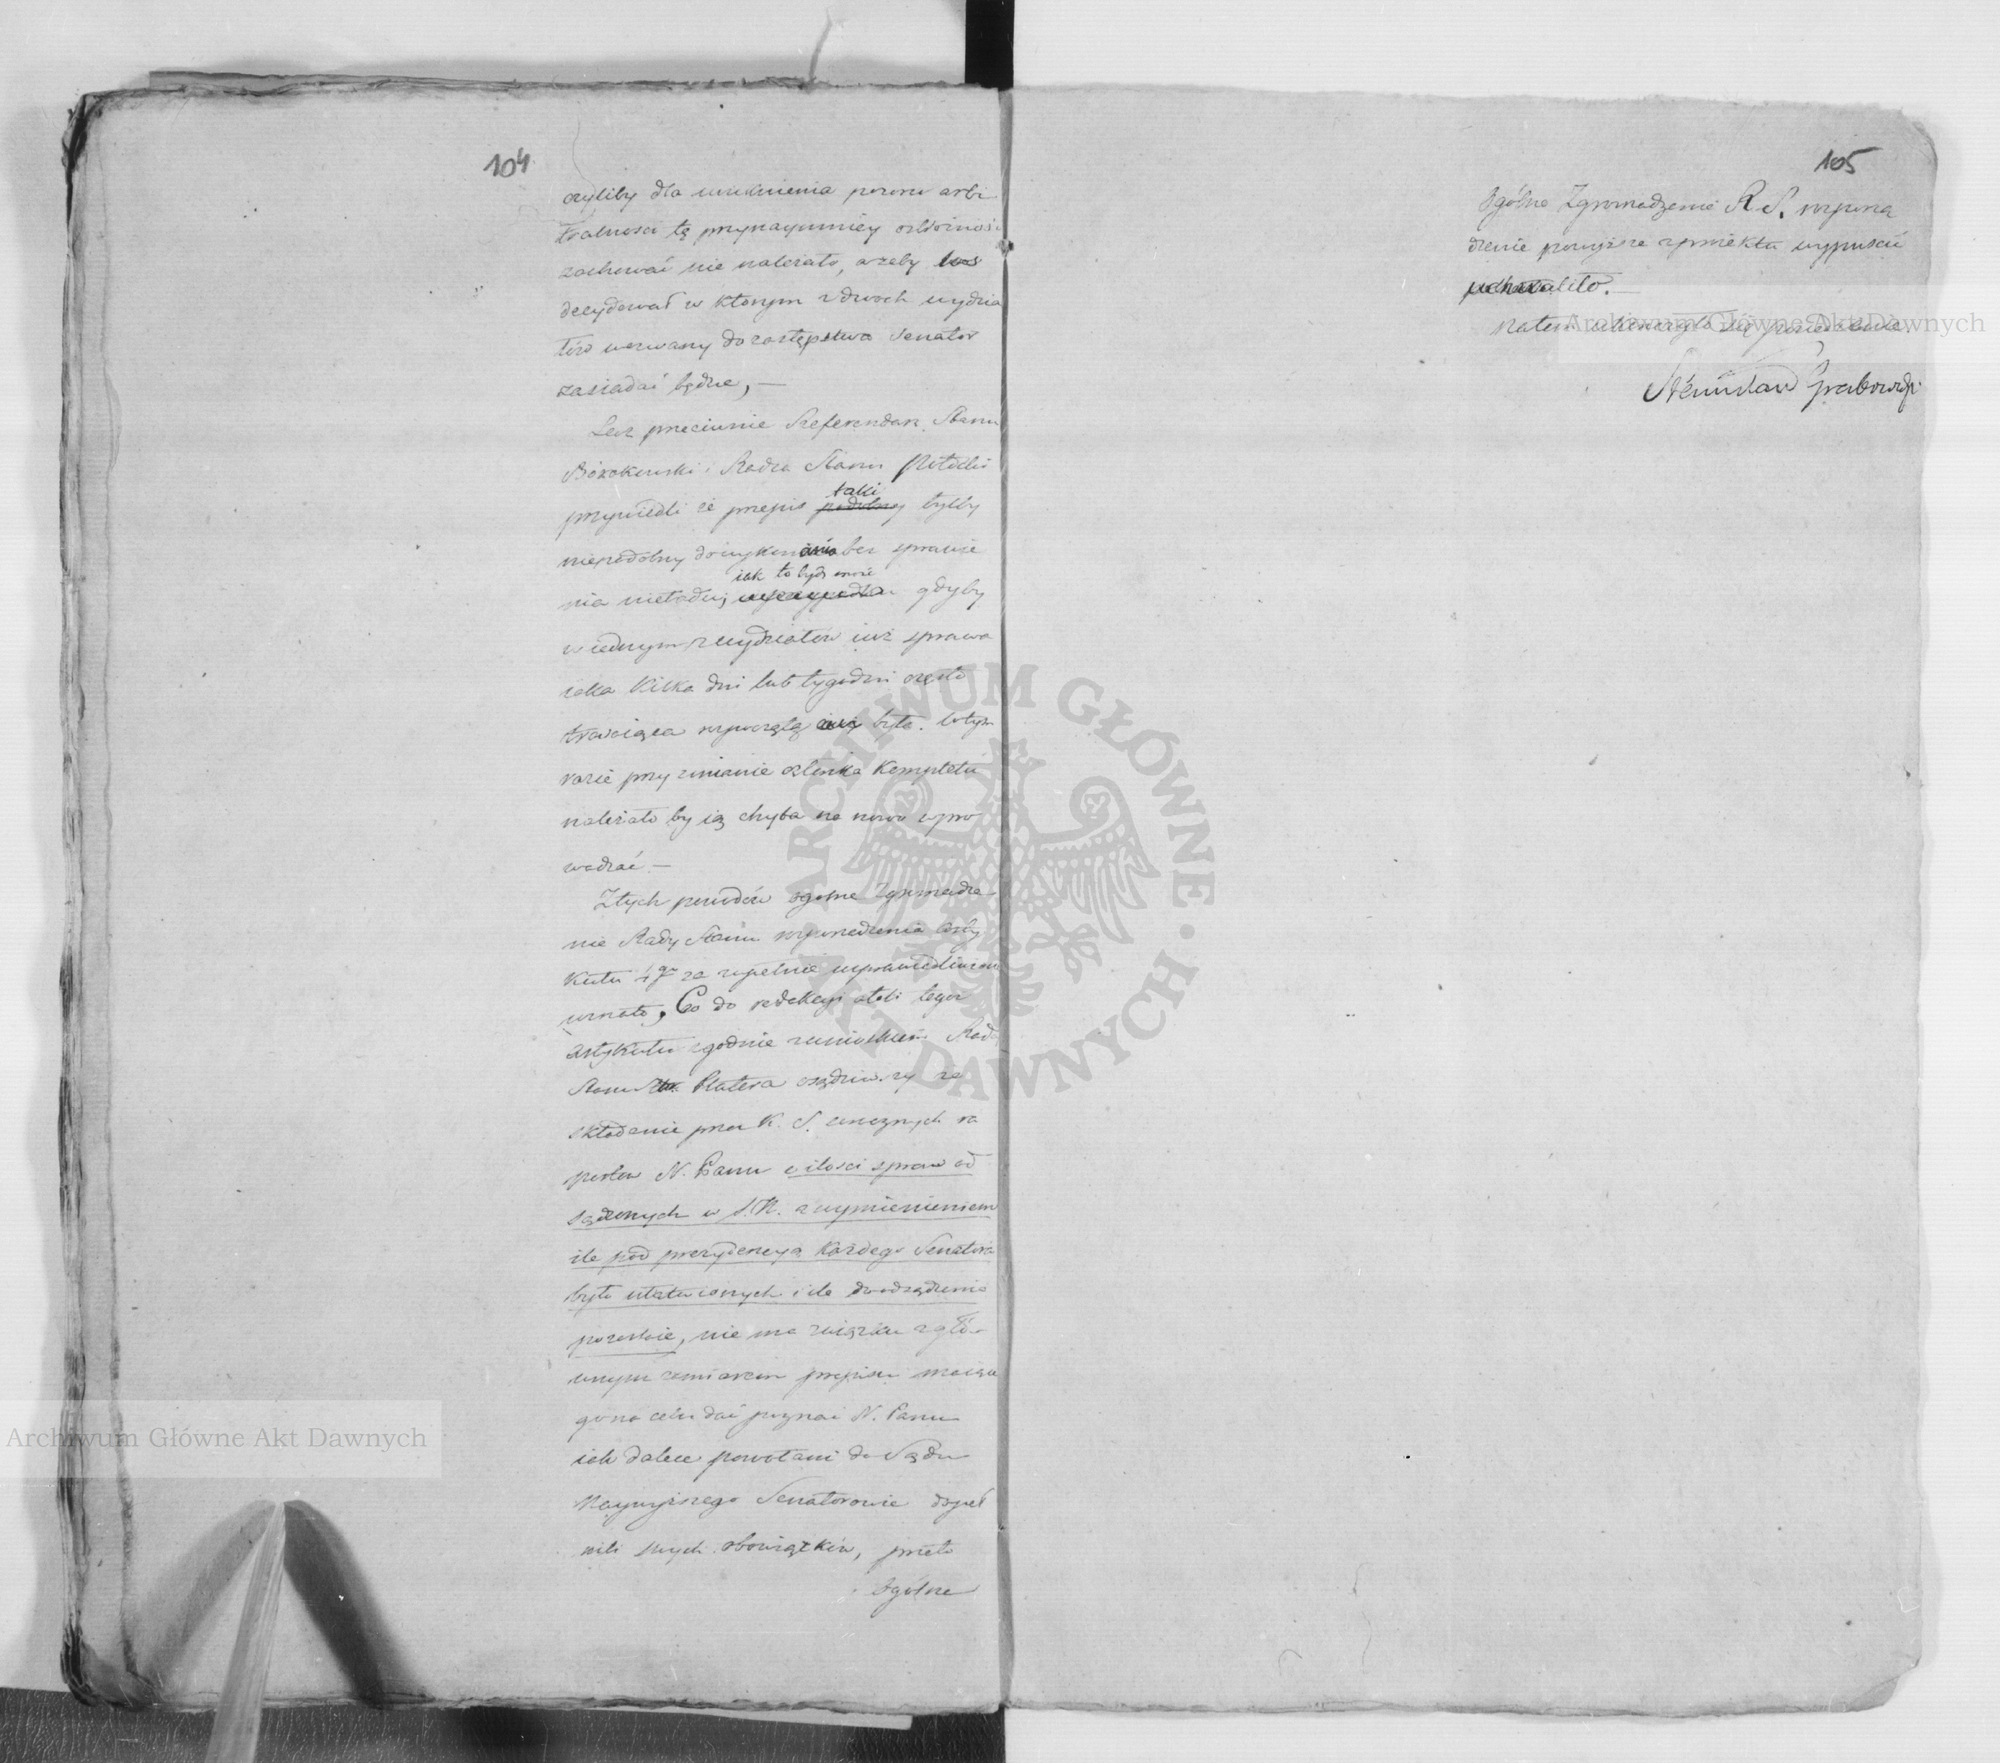 104
czyliby dla uniknienia pozoru arbi
tralności tę przynaymniey ostrożność
zachować nie należało, ażeby los
decydował w którym z dwóch wydzia
łów wezwany do zastępstwa Senator
zasiadać będzie, —
Lecz przeciwnie Referendarz Stanu
i Radca Stanu
przywiedli że przepis podobny taki byłby
niepodobny do wykonania bez sprawie
nia nieładu, iak to bydź może gdyby
w iednym z wydziałów iuż sprawa
iaka kilka dni lub tygodni często
trwaiąca rozpoczętą iuż była. w tym
razie przy zmianie członka Kompletu
należało by ią chyba na nowo wpro
wadzać —
Z tych powodów ogolne Zgromadze-
nie Rady Stanu rozporządzenia Arty
kułu 4go za zupełnie usprawiedliwione
uznało, Co do redakcyi atoli tegoż
artykułu zgodnie z wnioskiem Radcy
Stanu Platera osądziwszy że
składanie przez K. S. rocznych ra
portów N. Panu o ilości spraw od
sądzonych w S. N. z wymienieniem
ile pod prezydencyą każdego Senatora
było ułatwionych i ile do odsądzenia
pozostaie, nie ma związku z głó-
wnym zamiarem przepisu maiące
go na celu dać poznać N. Panu
iak dalece powołani do Sądu
Naywyższego Senatorowie dopeł
nili swych obowiązków, przeto
Ogólne
105
Ogólne Zgromadzenie R S. rozporzą
dzenie powyższe z proiektu wypuścić
uchwaliło. —
Zatem ukończyło się posiedzenie
Stanisław Grabowski
ARCHIWUM GŁÓWNE · AKT DAWNYCH ·
Archiwum Główne Akt Dawnych
Archiwum Główne Akt Dawnych